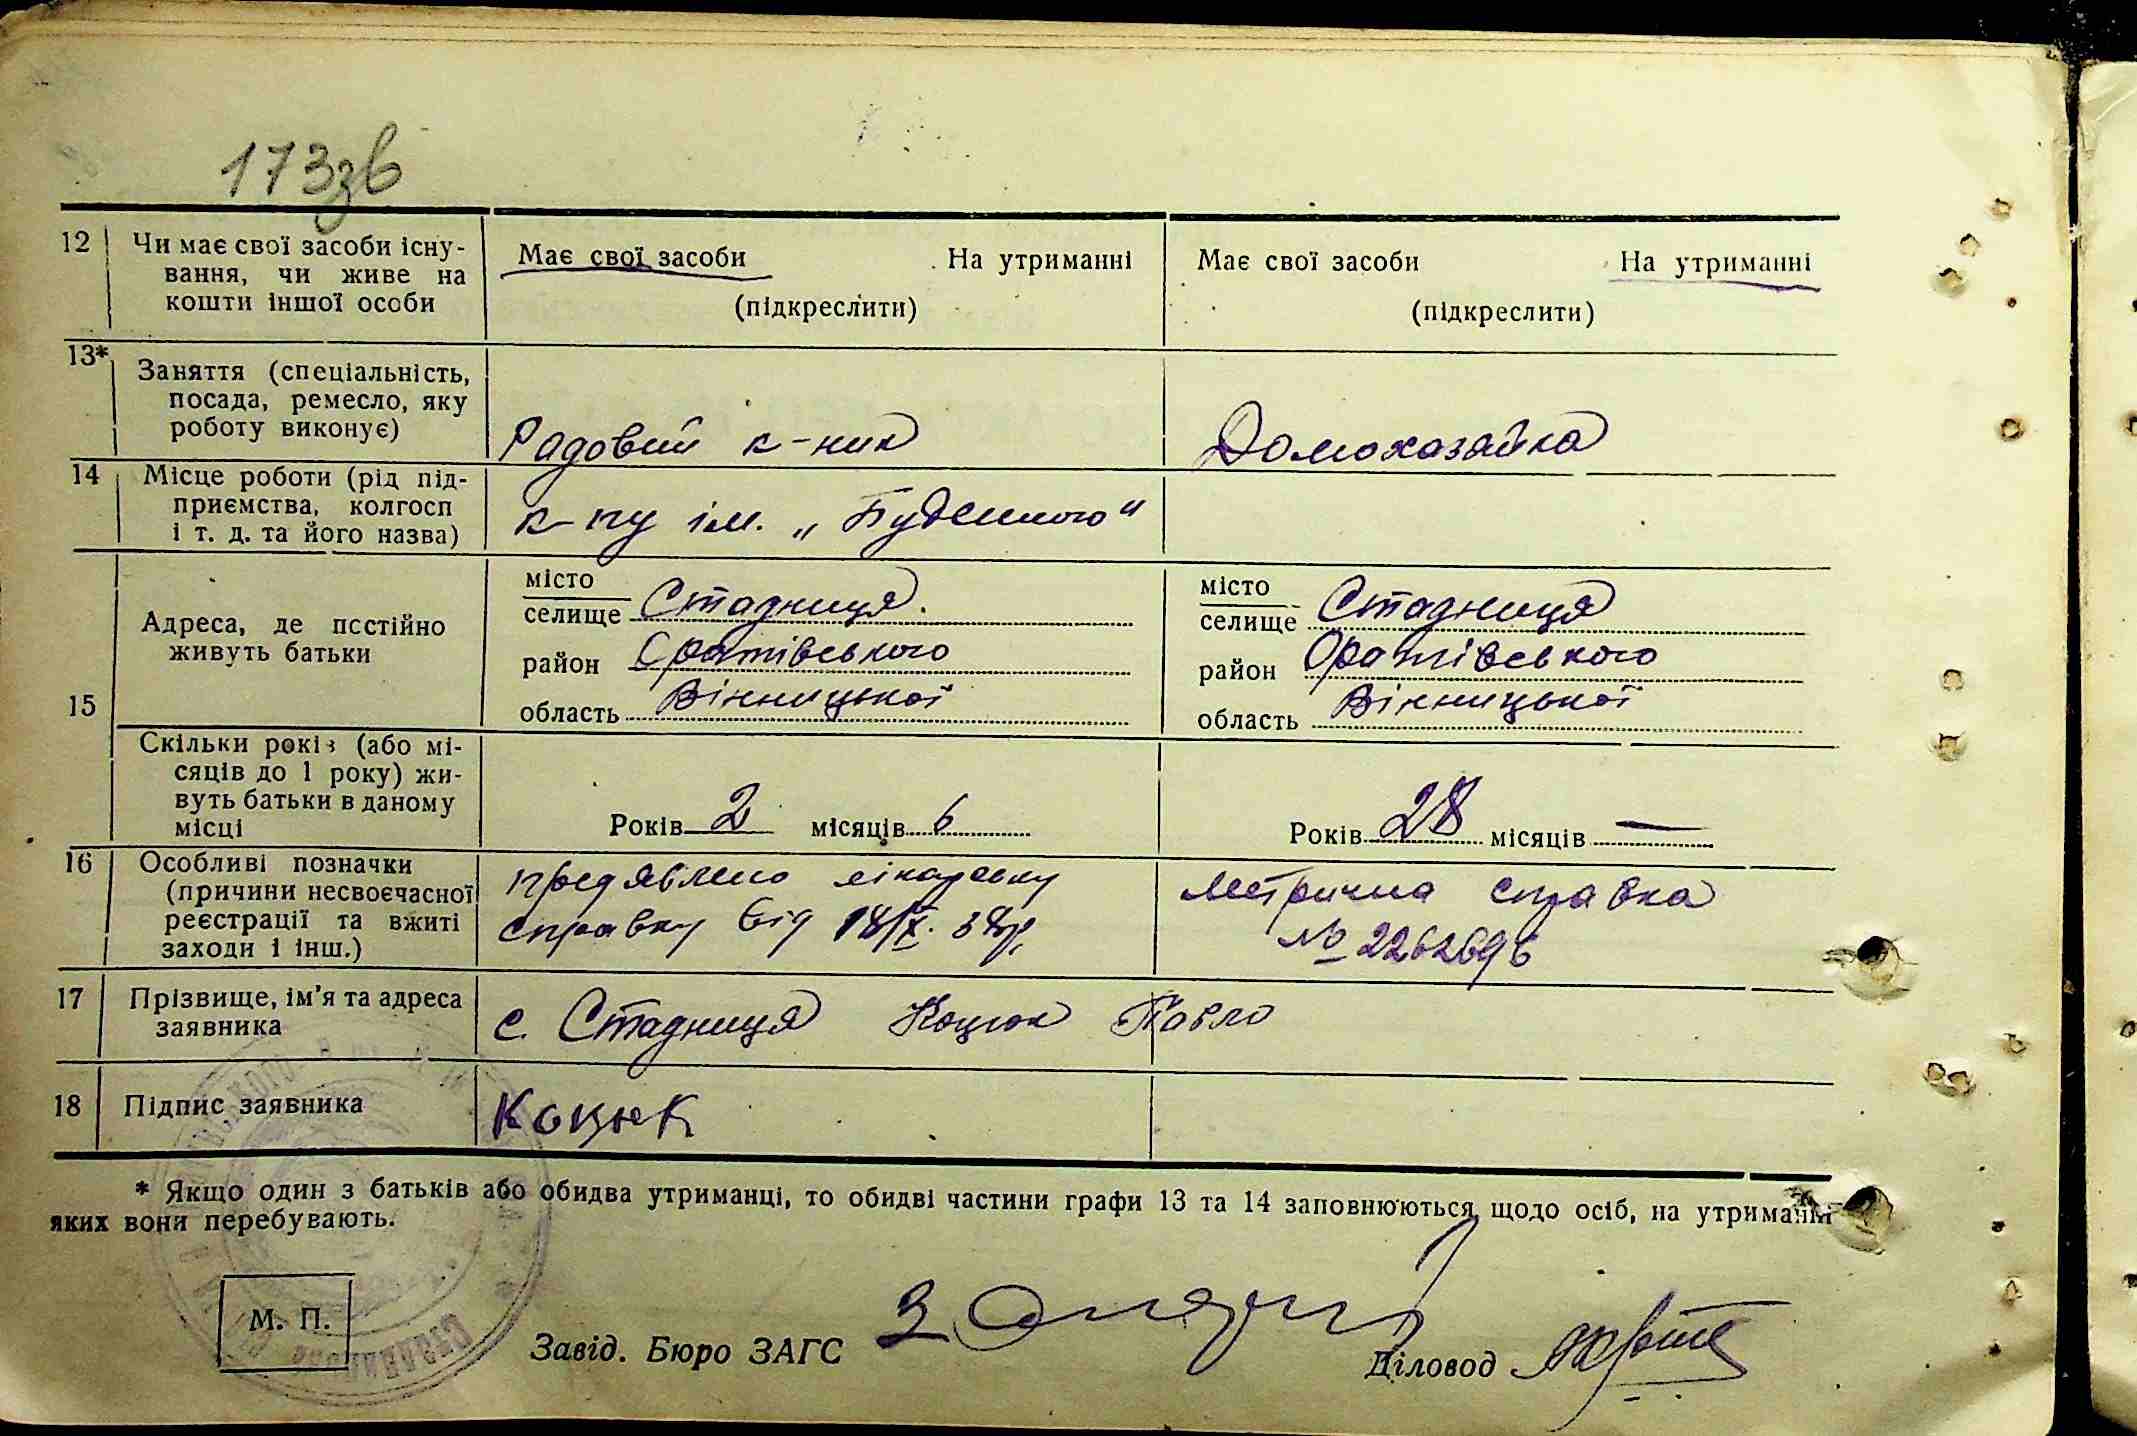 173зв
12 Чи має свої засоби існу-
вання, чи живе на
кошти іншої особи
Має свої засоби На утриманні
(підкреслити)
Має свої засоби На утриманні
(підкреслити)
13* Заняття (спеціальність,
посада, ремесло, яку
роботу виконує)
Радовий к-ник
Домохазайка
14 Місце роботи (рід під-
приємства, колгосп
і т. д. та його назва)
к-пу ім. „Буденного"
15 Адреса, де постійно
живуть батьки
місто
селище Стадниця.
район Оратівського
область Вінницької
місто
селище Стадниця
район Оратівського
область Вінницької
Скільки років (або мі-
сяців до 1 року) жи-
вуть батьки в даному
місці
Років 2 місяців 6
Років 28 місяців —
16 Особливі позначки
(причини несвоєчасної
реєстрації та вжиті
заходи і інш.)
предявлено лікарську
справку від 18/X. 38р,
метрична справка
№ 2262696
17 Прізвище, ім'я та адреса
заявника
с. Стадниця Коцюк Павло
18 Підпис заявника
Коцюк
* Якщо один з батьків або обидва утриманці, то обидві частини графи 13 та 14 заповнюються щодо осіб, на утриманні
яких вони перебувають.
М. П.
Завід. Бюро ЗАГС
Діловод